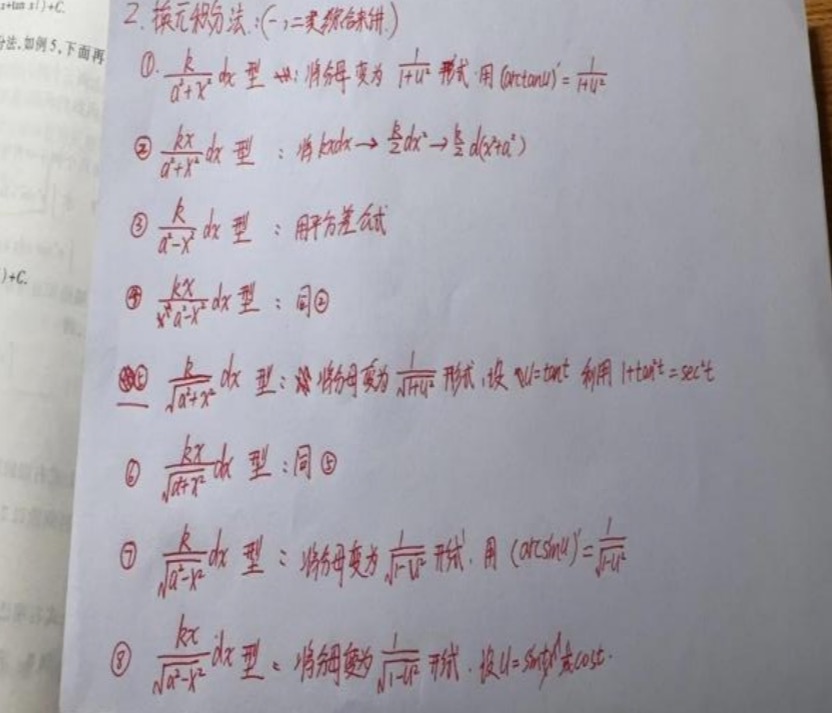 z+tan x|)+C.
分法,如例5,下面再
)+C.
2. 换元积分法:(一,二类综合来讲.)
①. k/(a²+x²) dx 型 : 将分母变为 1/(1+u²) 形式 用 (arctanu)' = 1/(1+u²)
② kx/(a²+x²) dx 型 : 将 kxdx → k/2 dx² → k/2 d(x²+a²)
③ k/(a²-x²) dx 型 : 用平方差公式
④ kx/(a²-x²) dx 型 : 同②
⑤ k/√(a²+x²) dx 型 : 将分母变为 1/√(1+u²) 形式,设 u=tant 利用 1+tan²t = sec²t
⑥ kx/√(a²+x²) dx 型 : 同⑤
⑦ k/√(a²-x²) dx 型 : 将分母变为 1/√(1-u²) 形式. 用 (arcsinu)' = 1/√(1-u²)
⑧ kx/√(a²-x²) dx 型 : 将分母变为 1/√(1-u²) 形式. 设 u=sint 或 cost.